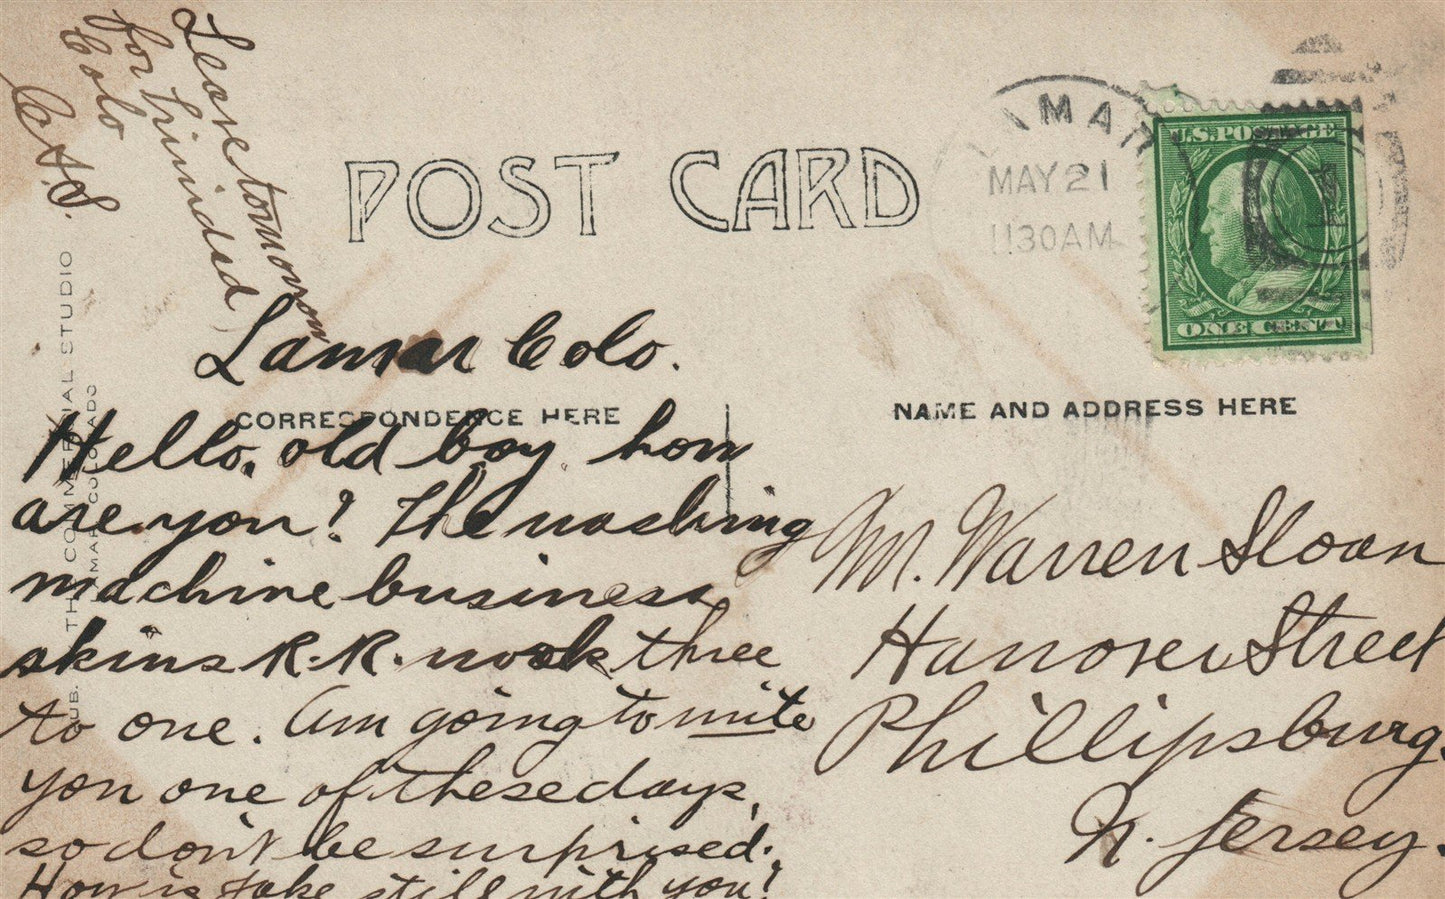 Leave tomorrow
for Trinidad
Colo
C.A.S.
POST CARD
LAMAR
MAY 21
1130AM
U.S. POSTAGE
1
ONE CENT
Lamar Colo.
CORRESPONDENCE HERE
NAME AND ADDRESS HERE
Hello, old boy, how
are you? The washing
machine business
skins R.R. work three
to one. Am going to write
you one of these days,
so don't be surprised.
How is Jake still with you?
Mr. Warren Sloan
Hanover Street
Phillipsburg,
N. Jersey.
PUB. THE COMMERCIAL STUDIO
LAMAR COLORADO